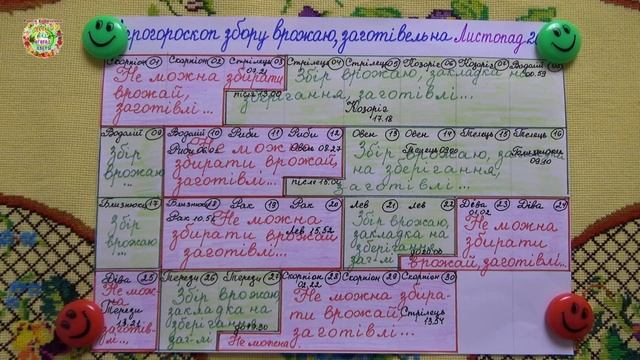 рогороскоп збору врожаю, заготівель на Листопад 2
Скорпіон 01 Скорпіон 02 Стрілець 03 Стрілець 04 Стрілець 05 Козоріг 06 Козоріг 07 Водолій
Не можна збирати врожай, заготівлі...
після 15.00
Збір врожаю, закладка на зберігання, заготівлі...
Козоріг 17.18
00.59
Водолій 09 Водолій 10 Риби 11 Риби 12 Овен 13 Овен 14 Телець 15 Телець 16
Збір врожаю...
Не можна збирати врожай, заготівлі...
Збір врожаю, закладка на зберігання, заготівлі...
Близнюки 17 Рак 19 Рак 20 Лев 21 Лев 22 Діва 23 Діва 24
Збір врожаю...
Рак 10.52
Не можна збирати врожай заготівлі...
Лев 15.52
Збір врожаю, закладка на зберігання заг-м
Не можна збирати врожай, заготівлі...
Діва 25 Терези 26 Терези 27 Скорпіон 28 Скорпіон 29 Скорпіон 30
Не можна заготівлі...
Терези 13.21
Збір врожаю закладка на зберігання заг-м
Не можна
Не можна збирати врожай заготівлі...
Стрілець 13.54